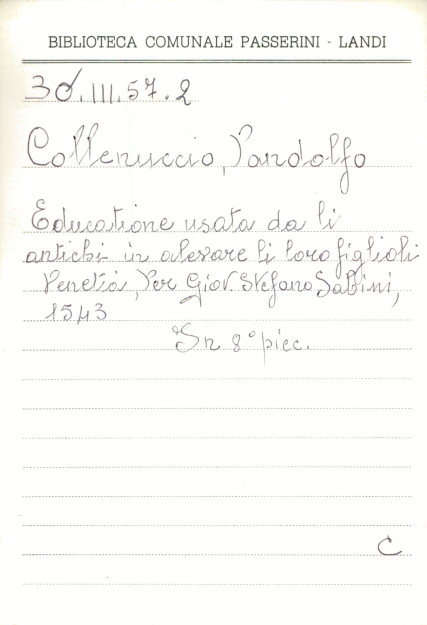 BIBLIOTECA COMUNALE PASSERINI - LANDI
3Ø.III.57.2
Collenuccio, Pandolfo
Educatione usata da li
antichi in alevare li loro figlioli
Venetia, Per Giov. Stefano Sabini,
1543
In 8° picc.
C